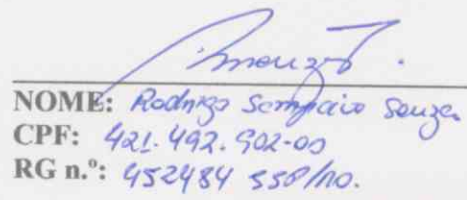 NOME: Rodrigo Sampaio Souza
CPF: 421.492.902-00
RG n.º: 452484 SSP/RO.